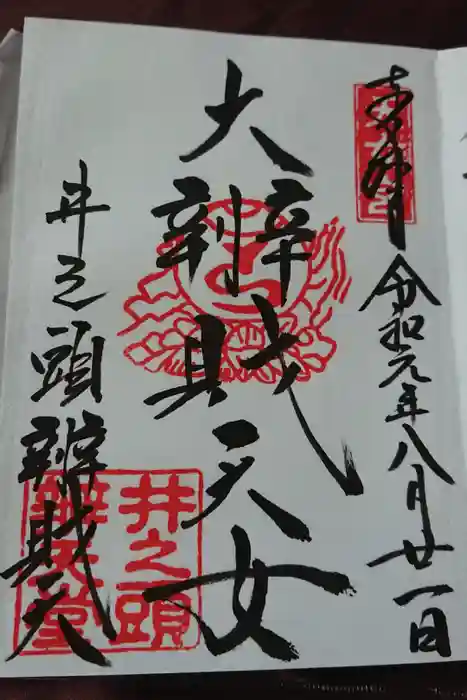 奉拝
令和元年八月廿一日
大辨財天女
井之頭辨財天
井之頭
辨天堂